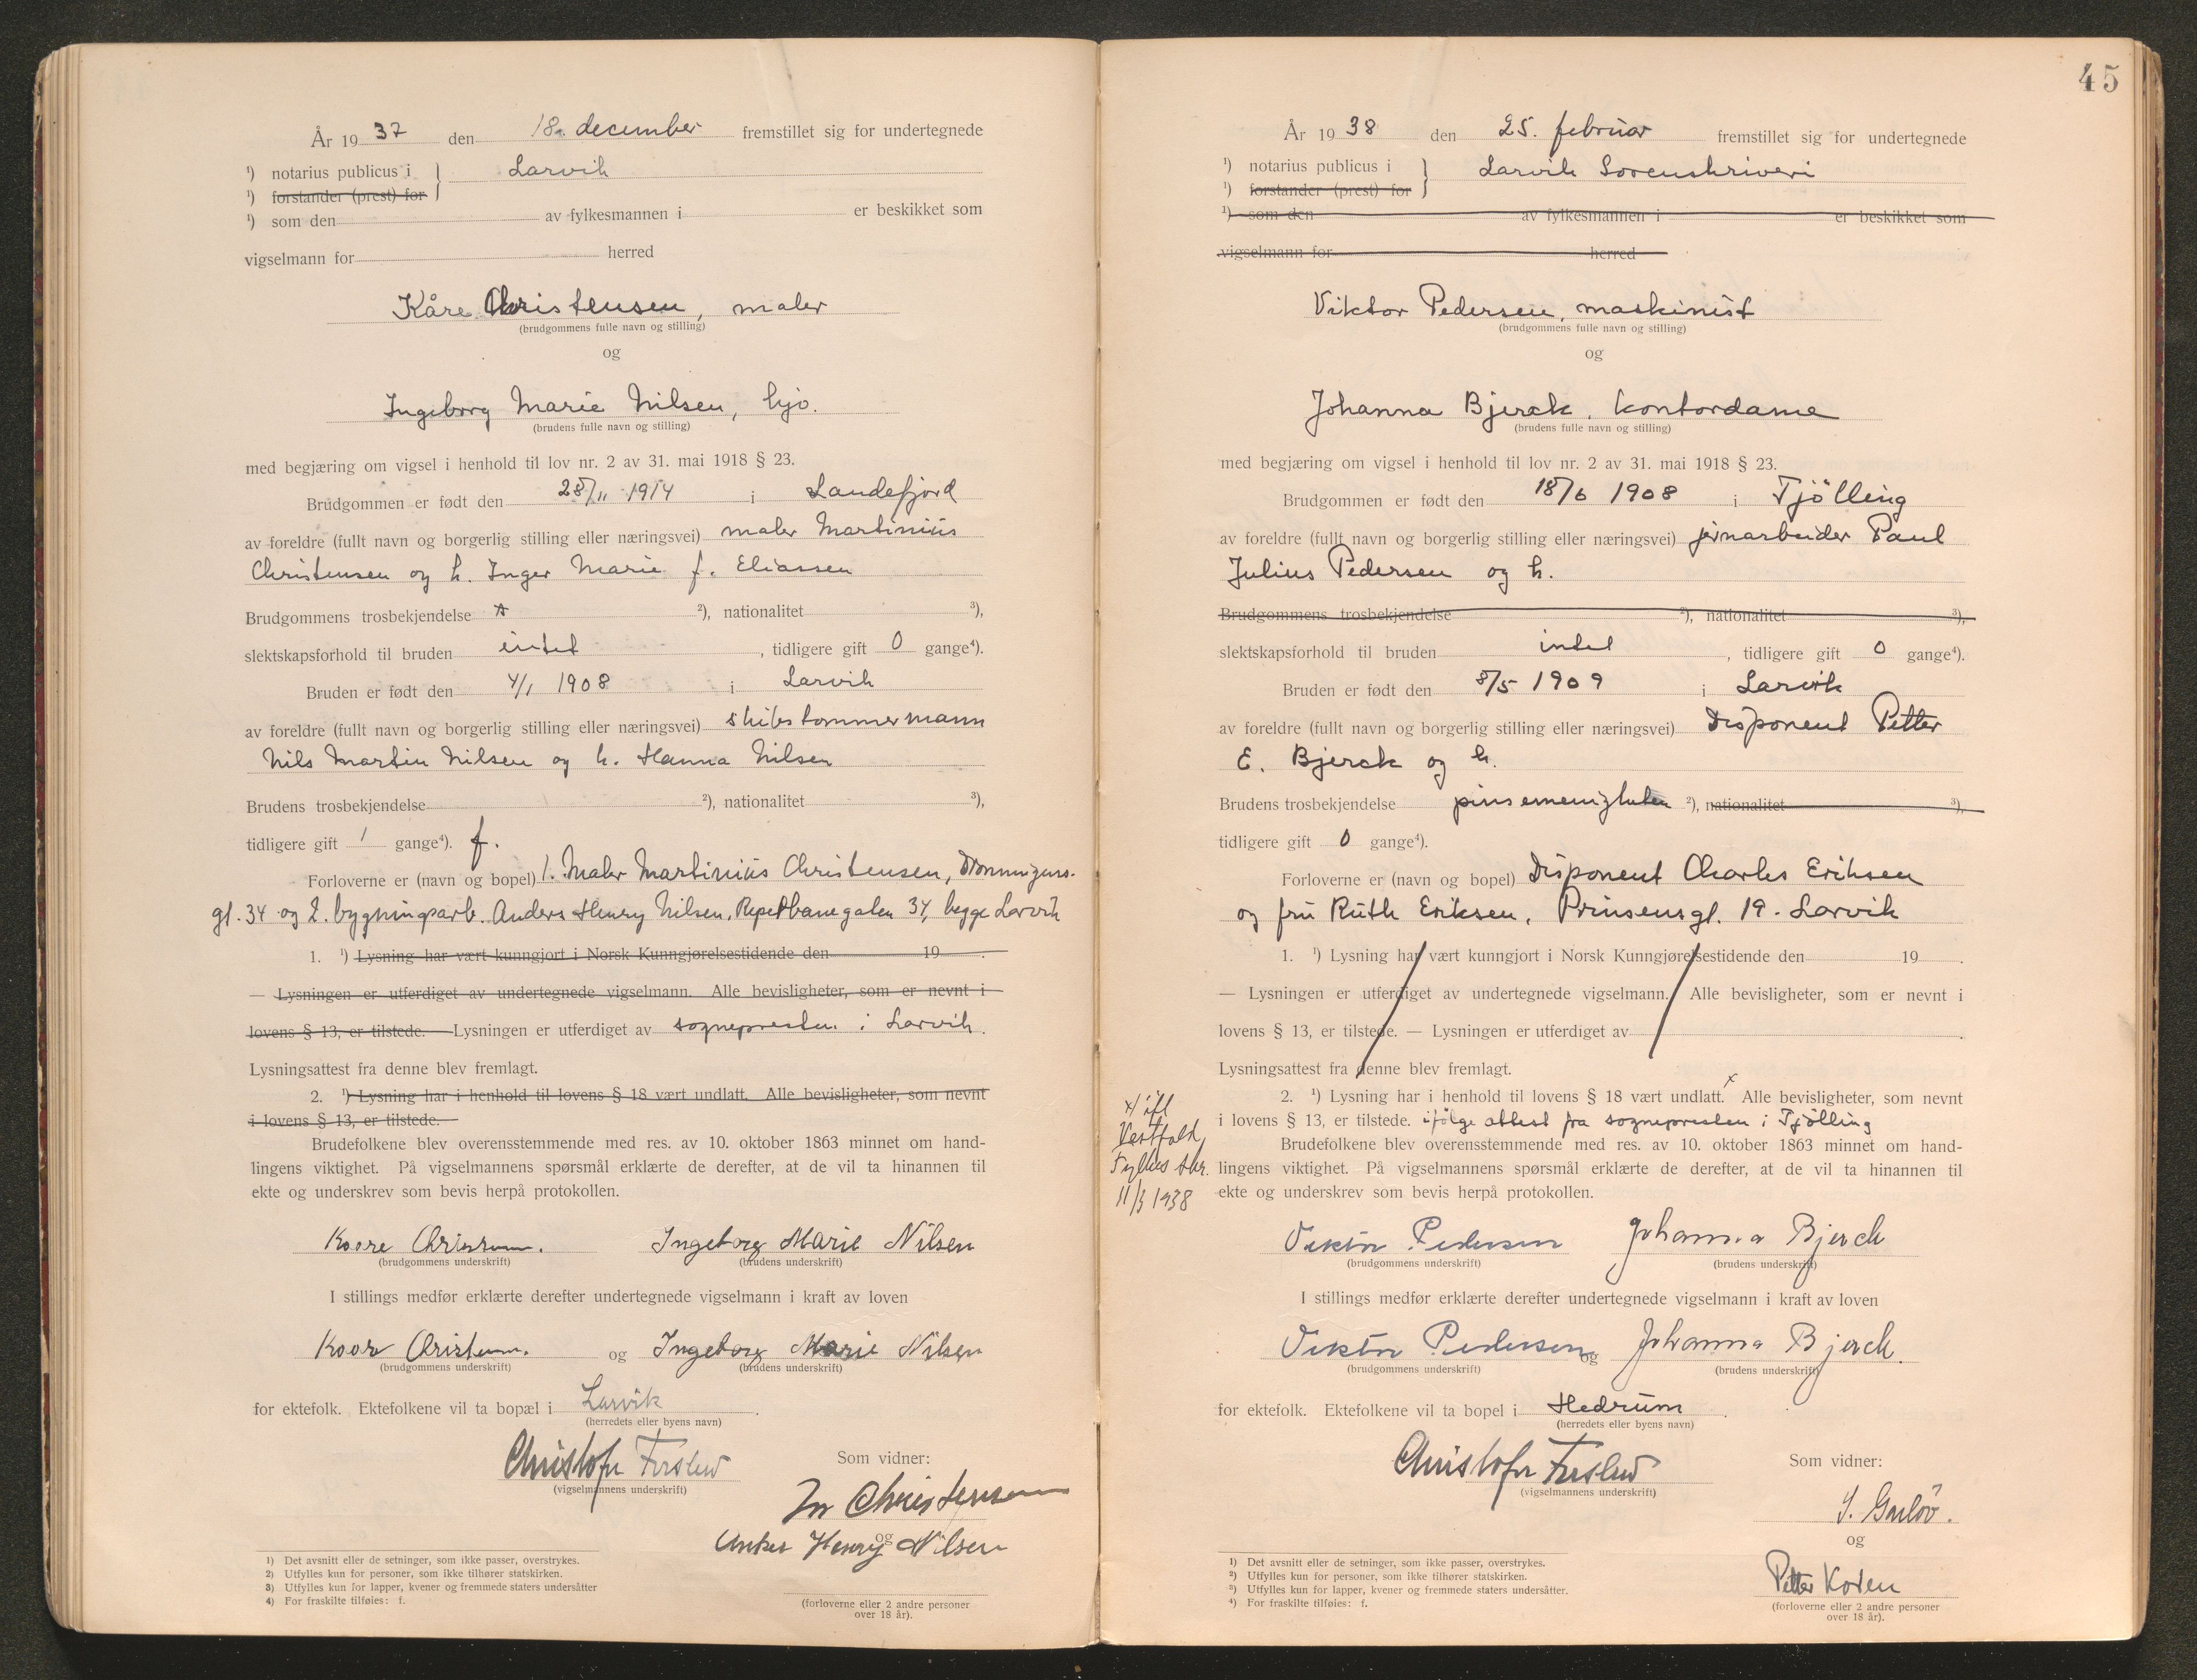 År 19 37 den 18. december fremstillet sig for undertegnede
¹) notarius publicus i } Larvik
¹) forstander (prest) for
¹) som den av fylkesmannen i er beskikket som
vigselmann for herred
Kåre Christensen, maler
(brudgommens fulle navn og stilling)
og
Ingeborg Marie Nilsen, hjv.
(brudens fulle navn og stilling)
med begjæring om vigsel i henhold til lov nr. 2 av 31. mai 1918 § 23.
Brudgommen er født den 28/11 1914 i Sandefjord
av foreldre (fullt navn og borgerlig stilling eller næringsvei) maler Martinius
Christensen og h. Inger Marie f. Eliassen
Brudgommens trosbekjendelse ²), nationalitet ³),
slektskapsforhold til bruden intet, tidligere gift 0 gange⁴).
Bruden er født den 4/1 1908 i Larvik
av foreldre (fullt navn og borgerlig stilling eller næringsvei) skibstømmermann
Nils Martin Nilsen og h. Hanna Nilsen
Brudens trosbekjendelse ²), nationalitet ³),
tidligere gift 1 gange⁴). f.
Forloverne er (navn og bopel) 1. Maler Martinius Christensen, Dronningens-
gt. 34 og 2. bygningsarb. Anders Henry Nilsen, Repetbanegaten 34, begge Larvik
1. ¹) Lysning har vært kunngjort i Norsk Kunngjørelsestidende den 19 .
— Lysningen er utferdiget av undertegnede vigselmann. Alle bevisligheter, som er nevnt i
lovens § 13, er tilstede. — Lysningen er utferdiget av sognepresten i Larvik.
Lysningsattest fra denne blev fremlagt.
2. ¹) Lysning har i henhold til lovens § 18 vært undlatt. Alle bevisligheter, som nevnt
i lovens § 13, er tilstede.
Brudefolkene blev overensstemmende med res. av 10. oktober 1863 minnet om hand-
lingens viktighet. På vigselmannens spørsmål erklærte de derefter, at de vil ta hinannen til
ekte og underskrev som bevis herpå protokollen.
Koore Christensen. Ingeborg Marie Nilsen
(brudgommens underskrift) (brudens underskrift)
I stillings medfør erklærte derefter undertegnede vigselmann i kraft av loven
Koore Christensen. og Ingeborg Marie Nilsen
(brudgommens underskrift) (brudens underskrift)
for ektefolk. Ektefolkene vil ta bopæl i Larvik .
(herredets eller byens navn)
Christofer
(vigselmannens underskrift)
Som vidner:
M Christensen
og
Anker Henry Nilsen
(forloverne eller 2 andre personer
over 18 år).
1) Det avsnitt eller de setninger, som ikke passer, overstrykes.
2) Utfylles kun for personer, som ikke tilhører statskirken.
3) Utfylles kun for lapper, kvener og fremmede staters undersåtter
4) For fraskilte tilføies: f.
45
År 19 38 den 25. februar fremstillet sig for undertegnede
¹) notarius publicus i } Larvik Sorenskriveri
¹) forstander (prest) for
¹) som den av fylkesmannen i er beskikket som
vigselmann for herred
Viktor Pedersen, maskinist
(brudgommens fulle navn og stilling)
og
Johanna Bjerck, kontordame
(brudens fulle navn og stilling)
med begjæring om vigsel i henhold til lov nr. 2 av 31. mai 1918 § 23.
Brudgommen er født den 18/6 1908 i Tjölling
av foreldre (fullt navn og borgerlig stilling eller næringsvei) jernarbeider Paul
Julius Pedersen og h.
Brudgommens trosbekjendelse ²), nationalitet ³),
slektskapsforhold til bruden intet, tidligere gift 0 gange⁴).
Bruden er født den 8/5 1909 i Larvik
av foreldre (fullt navn og borgerlig stilling eller næringsvei) Disponent Petter
E. Bjerck og h.
Brudens trosbekjendelse pinsemenigheten ²), nationalitet ³),
tidligere gift 0 gange⁴).
Forloverne er (navn og bopel) Disponent Charles Eriksen
og fru Ruth Eriksen, Prinsensgt. 19. Larvik
1. ¹) Lysning har vært kunngjort i Norsk Kunngjørelsestidende den 19 .
— Lysningen er utferdiget av undertegnede vigselmann. Alle bevisligheter, som er nevnt i
lovens § 13, er tilstede. — Lysningen er utferdiget av .
Lysningsattest fra denne blev fremlagt.
2. ¹) Lysning har i henhold til lovens § 18 vært undlatt. x Alle bevisligheter, som nevnt
i lovens § 13, er tilstede. ifølge attest fra sognepresten i Tjölling
x/ ifl
Vestfold
Fylkes skr.
11/3 1938
Brudefolkene blev overensstemmende med res. av 10. oktober 1863 minnet om hand-
lingens viktighet. På vigselmannens spørsmål erklærte de derefter, at de vil ta hinannen til
ekte og underskrev som bevis herpå protokollen.
Viktor Pedersen Johanna Bjerck
(brudgommens underskrift) (brudens underskrift)
I stillings medfør erklærte derefter undertegnede vigselmann i kraft av loven
Viktor Pedersen og Johanna Bjerck.
(brudgommens underskrift) (brudens underskrift)
for ektefolk. Ektefolkene vil ta bopel i Hedrum .
(herredets eller byens navn)
Christofer
(vigselmannens underskrift)
Som vidner:
og
Petter
(forloverne eller 2 andre personer
over 18 år).
1) Det avsnitt eller de setninger, som ikke passer, overstrykes.
2) Utfylles kun for personer, som ikke tilhører statskirken.
3) Utfylles kun for lapper, kvener og fremmede staters undersåtter.
4) For fraskilte tilføies: f.